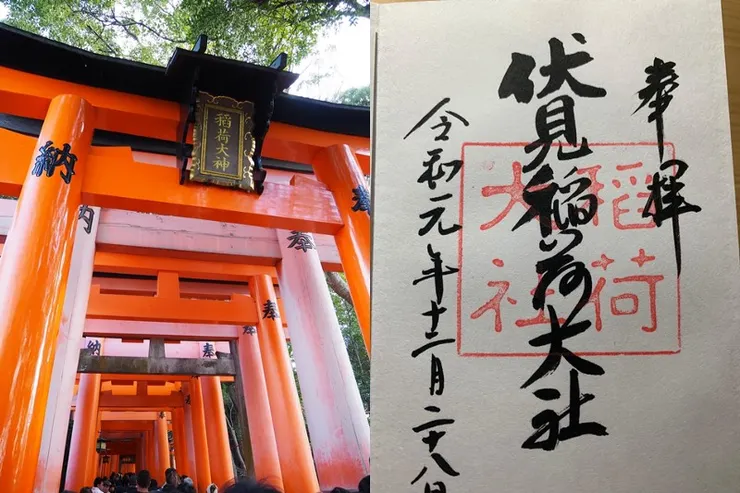 稲荷大神
納
納
奉
奉
納
奉
奉拝
伏見稲荷大社
稲荷
大社
令和元年十二月二十八日